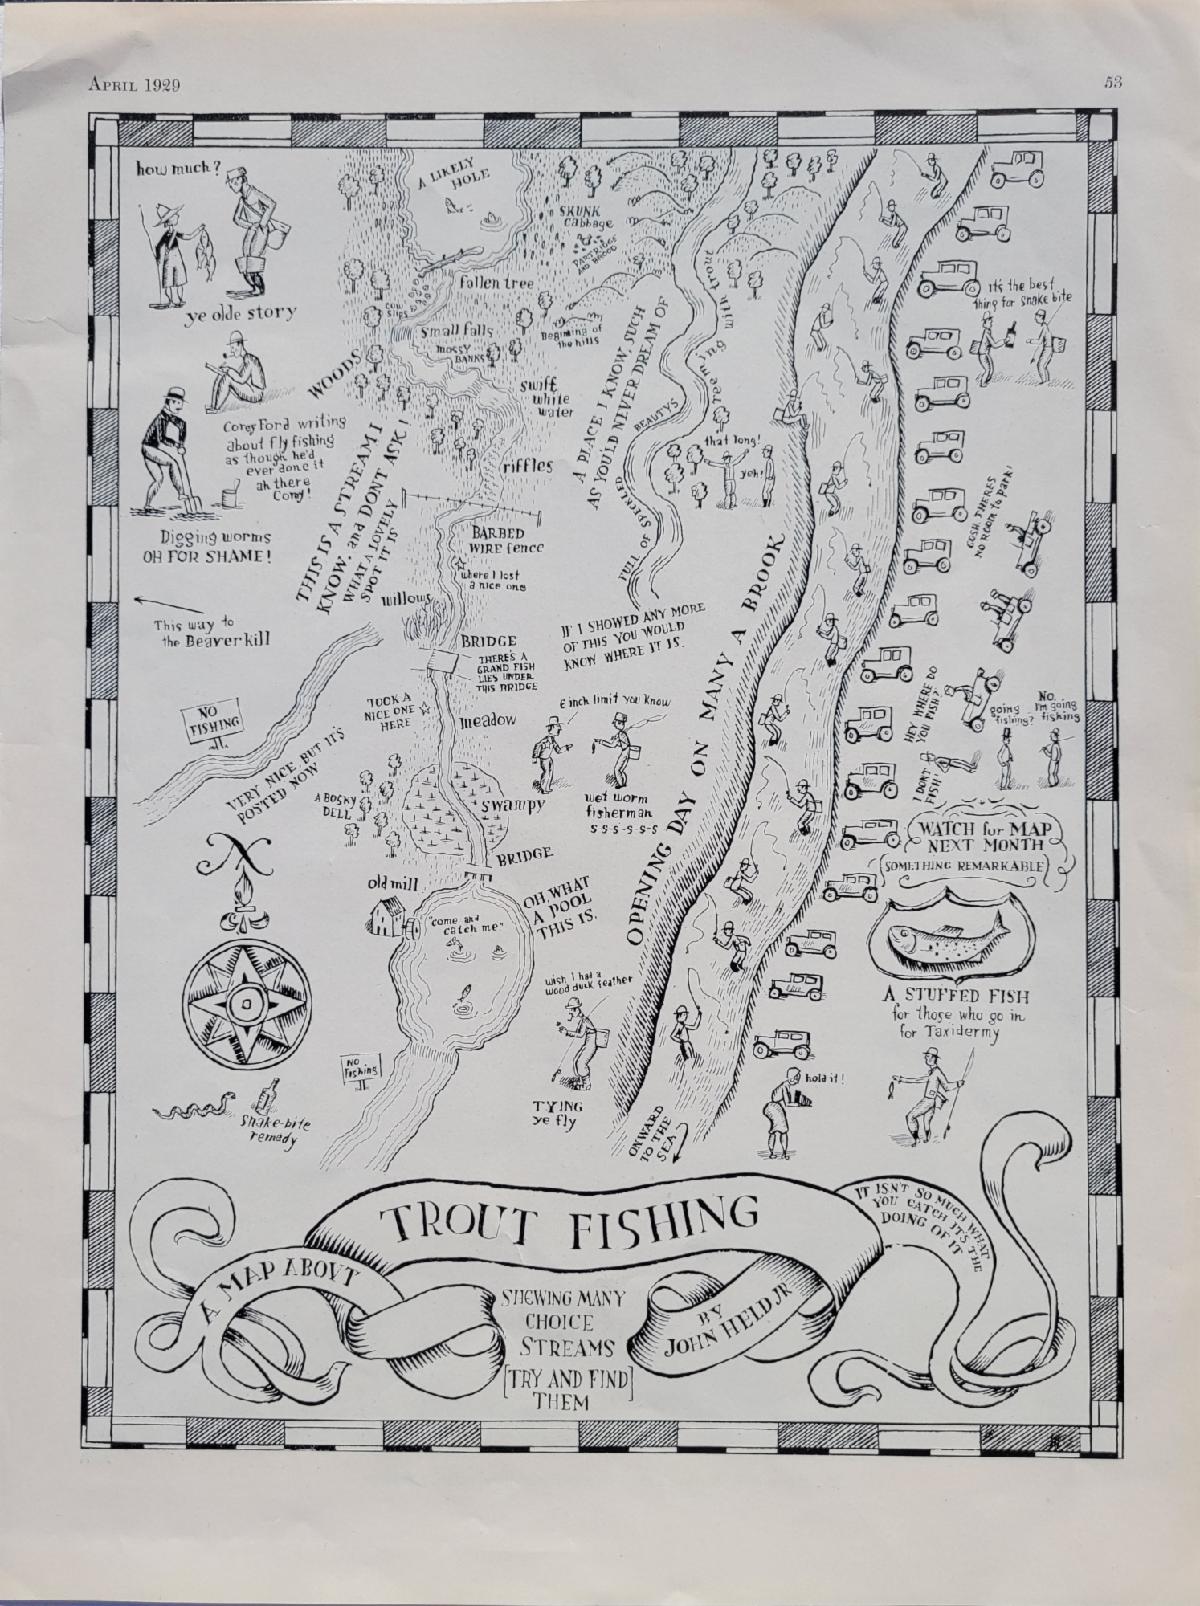 APRIL 1929
53
how much?
ye olde story
A LIKELY
HOLE
SKUNK
Cabbage
PARTRIDGE
fallen tree
Small falls
mossy
BANKS
Begining of
the hills
swift
white
water
riffles
WOODS
Corey Ford writing
about fly fishing
as though he'd
ever done it
ah there
Corey!
Digging worms
OH FOR SHAME!
THIS IS A STREAM I
KNOW, and DON'T ASK!
WHAT A LOVELY
SPOT IT IS
BARBED
WIRE fence
where I lost
a nice one
willows
BRIDGE
THERE'S A
GRAND FISH
LIES UNDER
THIS BRIDGE
TOOK A
NICE ONE
HERE
meadow
This way to
the Beaverkill
NO
FISHING
VERY NICE BUT IT'S
POSTED NOW
A BOSKY
DELL
swampy
BRIDGE
old mill
"come and
catch me"
OH, WHAT
A POOL
THIS IS.
N
NO
Fishing
Snake-bite
remedy
A PLACE I KNOW, SUCH
AS YOU'LD NEVER DREAM OF
FULL OF SPECKLED BEAUTYS
teeming with trout
that long!
yeh!
IF I SHOWED ANY MORE
OF THIS YOU WOULD
KNOW WHERE IT IS.
6 inch limit you know
wet worm
fisherman
S-S-S-S-S-S
wish I had a
wood duck feather
TYING
ye fly
OPENING DAY ON MANY A BROOK
ONWARD
TO THE
SEA
It's the best
thing for snake bite
GOSH THERES
NO ROOM to park!
HEY WHERE DO
YOU FISH?
I DON'T
FISH!
going
fishing?
No.
I'm going
fishing
WATCH for MAP
NEXT MONTH
(SOMETHING REMARKABLE)
A STUFFED FISH
for those who go in
for Taxidermy
hold it!
A MAP ABOVT
TROUT FISHING
IT ISN'T SO MUCH WHAT
YOU CATCH IT'S THE
DOING OF IT
SHEWING MANY
CHOICE
STREAMS
[TRY AND FIND]
THEM
BY
JOHN HELD JR